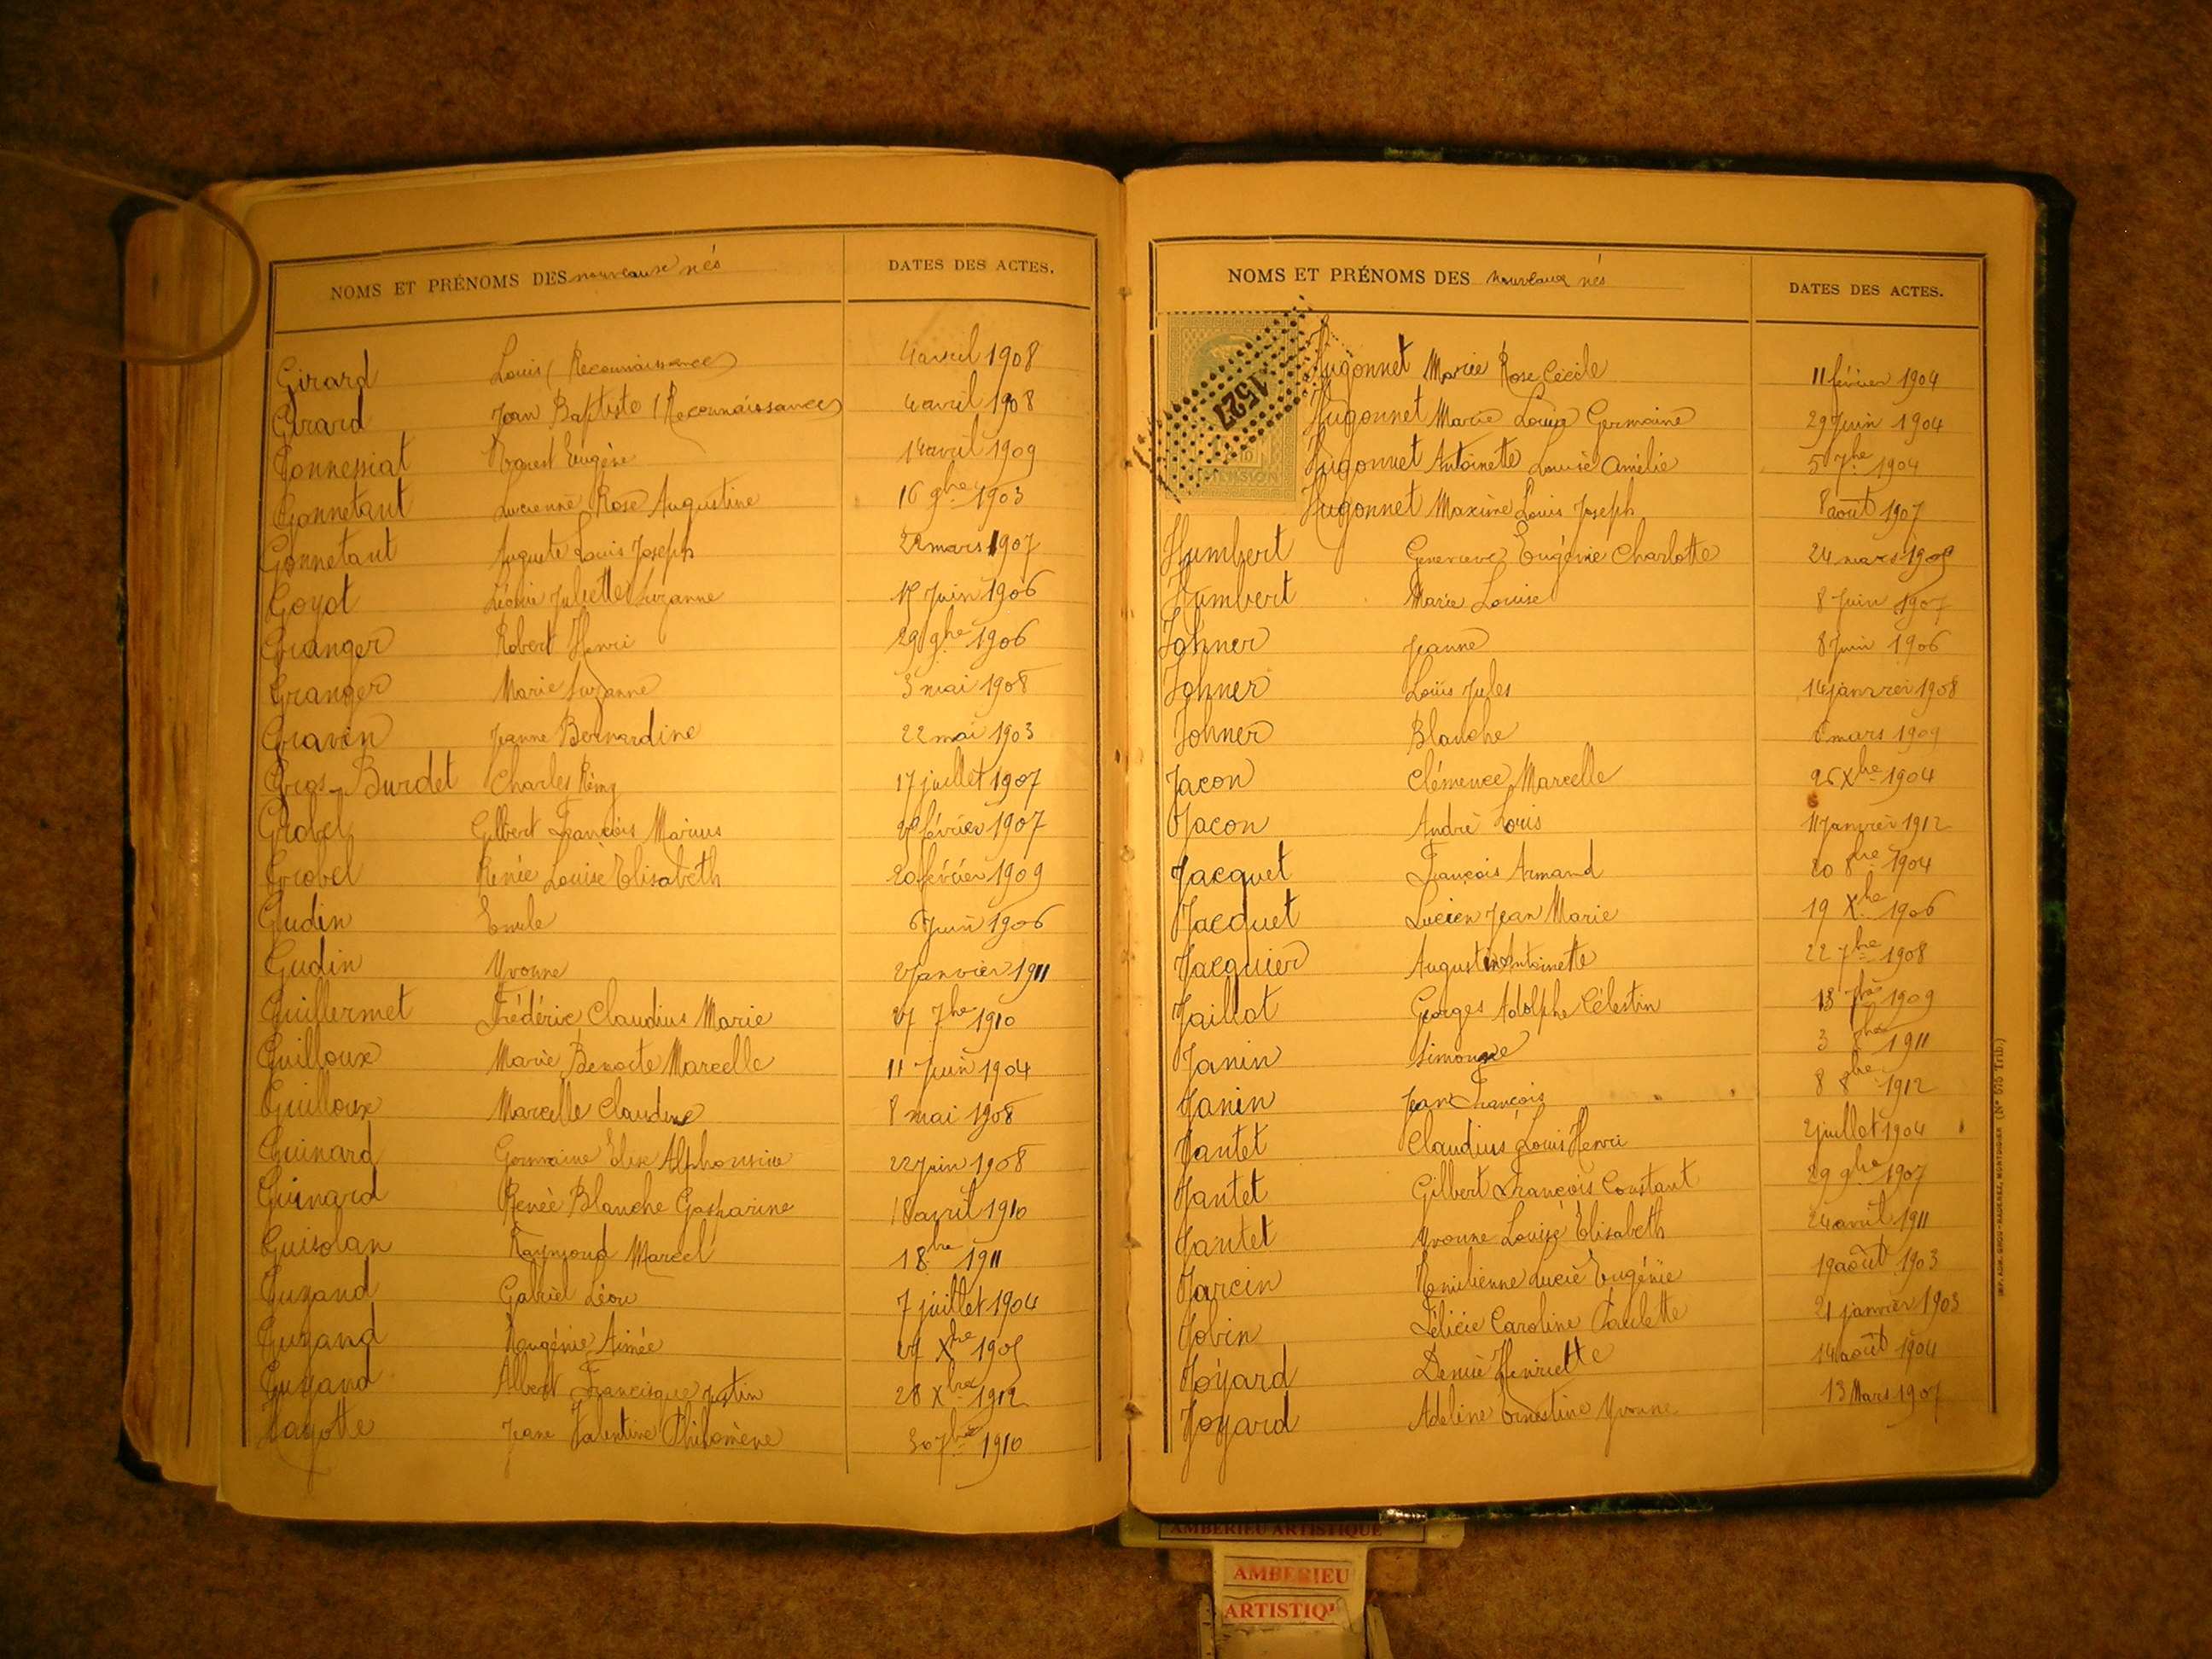 NOMS ET PRÉNOMS DES nouveaux nés DATES DES ACTES.
Girard Louis (Reconnaissance) 4 avril 1908
Girard Jean Baptiste (Reconnaissance) 4 avril 1908
Gonnessiat Ernest Eugène 14 avril 1909
Gonnetant Lucienne Rose Augustine 16 9bre 1903
Gonnetant Auguste Louis Joseph 22 mars 1907
Goyot Léonie Juliette Suzanne Juin 1906
Granger Robert Henri 29 9bre 1906
Granger Marie Suzanne 3 mai 1908
Gravin Jeanne Bernardine 22 mai 1903
Gros-Burdet Charles Rémy 17 juillet 1907
Grobel Gilbert François Marius février 1907
Grobel Renée Louise Elisabeth 20 février 1909
Gudin Emile 6 Juin 1906
Gudin Yvonne 2 janvier 1911
Guillermet Frédéric Claudius Marie 27 7bre 1910
Guilloux Marie Benoite Marcelle 11 Juin 1904
Guilloux Marcelle Claudine 8 mai 1908
Guinard Germaine Elise Alphonsine 22 juin 1908
Guinard Renée Blanche Gasparine 18 avril 1910
Guisolan Raymond Marcel 1 8bre 1911
Guzand Gabriel Léon 7 juillet 1904
Guzand Eugénie Aimée 27 Xbre 1905
Guzand Albert Francisque Justin 28 Xbre 1912
Hayotte Jeane Valentine Philomène 30 7bre 1910
NOMS ET PRÉNOMS DES nouveaux nés DATES DES ACTES.
1527
Hugonnet Marie Rose Cécile 11 février 1904
Hugonnet Marie Louise Germaine 29 Juin 1904
Hugonnet Antoinette Louise Amélie 5 7bre 1904
Hugonnet Maxime Louis Joseph 8 août 1907
Humbert Genevieve Eugénie Charlotte 24 mars 1905
Humbert Marie Louise 8 Juin 1907
Johner Jeanne 8 Juin 1906
Johner Louis Jules 14 janvier 1908
Johner Blanche 6 mars 1909
Jacon Clémence Marcelle 26 Xbre 1904
Jacon André Louis 11 Janvier 1912
Jacquet François Armand 20 8bre 1904
Jacquet Lucien Jean Marie 19 Xbre 1906
Jacquier Augustin Antoinette 22 7bre 1908
Jaillot Georges Adolphe Célestin 13 7bre 1909
Janin Simonne 3 8bre 1911
Janin Jean François 8 8bre 1912
Jantet Claudius Louis Henri 2 juillet 1904
Jantet Gilbert François Constant 29 9bre 1907
Jantet Yvonne Louise Elisabeth 24 avril 1911
Jarcin Emilienne Lucie Eugénie 19 août 1903
Jobin Félicie Caroline Paulette 21 janvier 1903
Joyard Denise Henriette 14 août 1904
Joyard Adeline Ernestine Yvonne 13 Mars 1907
AMBERIEU ARTISTIQUE
AMBERIEU
ARTISTIQU